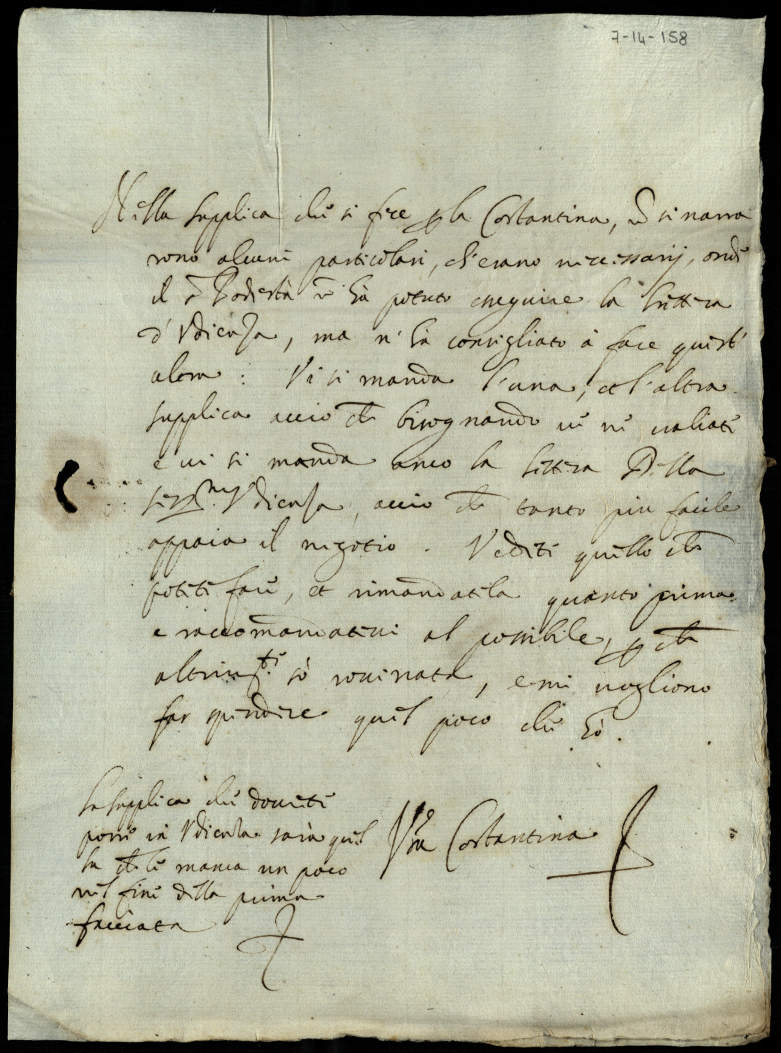 7-14-158
Nella supplica che si fece p la Costantina, nõ si narra
rono alcuni particolari, ch'erano necessarij, onde
il Podestà nõ hà potuto eseguire la lettera
d'Vdienza, ma n'hà consigliato à fare quest'
altra: Vi si manda l'una, et l'altra
supplica acciò che bisognando ve ne valiate
e vi si manda anco la lettera Della
Vdienza, acciò che tanto piu facile
appaia il negotio. Vedete quello che
potete fare, et rimandatela quanto prima
e raccomandatevi al possibile, p che
altrim.te sò rouinata, e mi vogliono
far spendere quel poco che hò.
Vra Costantina
La supplica che douete
porre in Vdienza sarà quel
la che le manca un poco
nel fine della prima
facciata